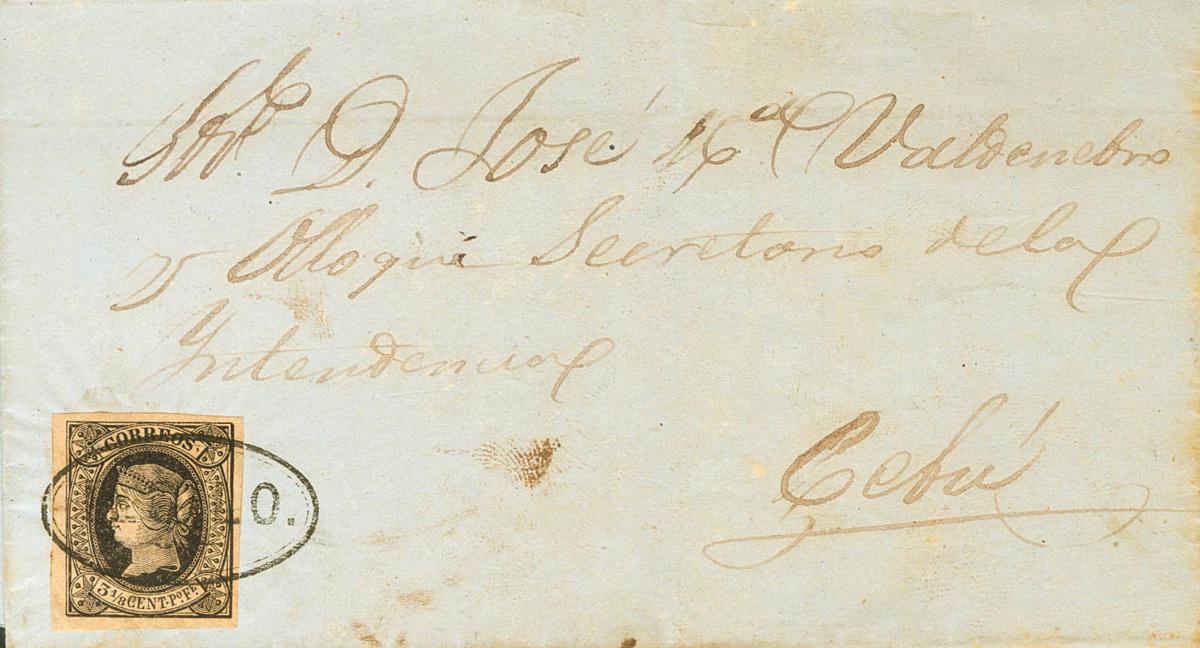 Sor. D. José Ma. Valdenebro
y Olloqui Secretario de la
Intendencia
Cebú
CORREOS
3 1/8 CENT. Po. Fe.
O.